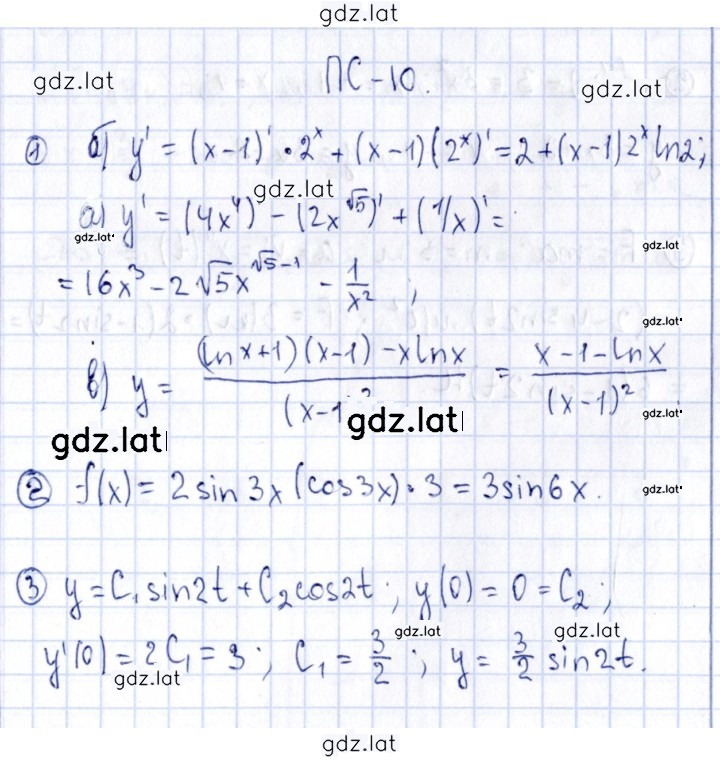 gdz.lat
ПС-10.
gdz.lat gdz.lat
① б) y' = (x-1)' • 2^x + (x-1)(2^x)' = 2 + (x-1)2^x ln2;
gdz.lat
а) y' = (4x^4)' - (2x^√5)' + (1/x)' =
gdz.lat gdz.lat
= 16x^3 - 2√5x^(√5-1) - 1/x^2 ;
gdz.lat
в) y = ((ln x+1)(x-1) - x ln x)/(x-1)^2 = (x-1-ln x)/(x-1)^2
gdz.lat gdz.lat gdz.lat
② f(x) = 2 sin 3x (cos3x) • 3 = 3sin6x.
gdz.lat
③ y = C₁ sin2t + C₂cos2t ; y(0) = 0 = C₂ ;
gdz.lat gdz.lat
y'(0) = 2C₁ = 3 ; C₁ = 3/2 ; y = 3/2 sin2t.
gdz.lat
gdz.lat